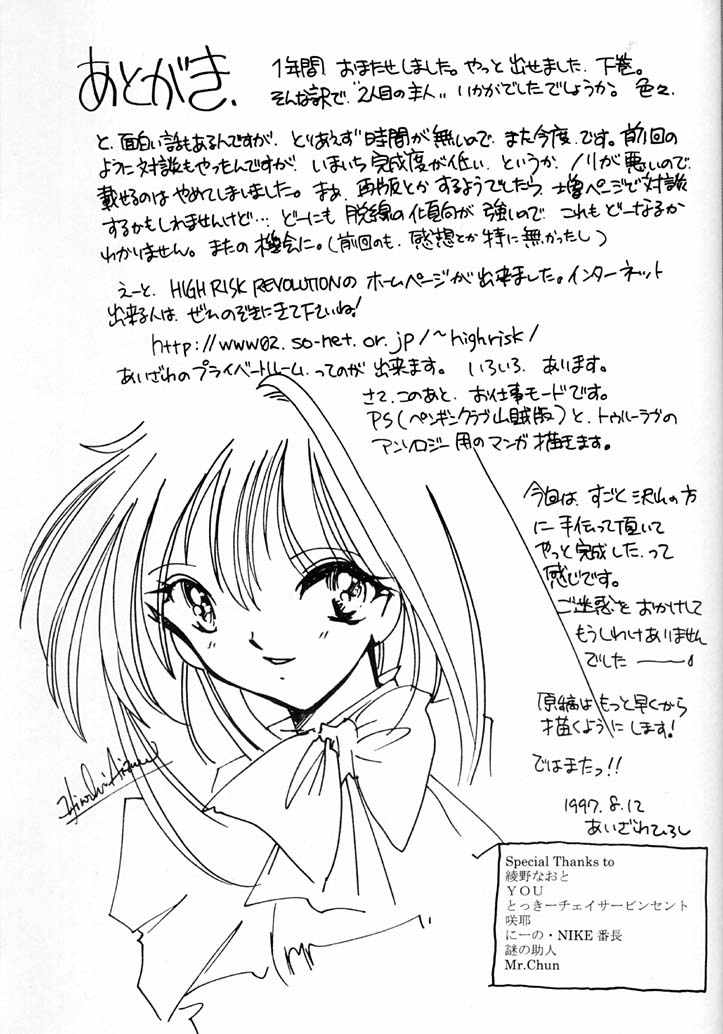 あとがき.
1年間、おまたせしました。やっと出せました、下巻。
そんな訳で、"2人目の主人"いかがでしたでしょうか。色々
と、面白い話もあるんですが、とりあえず時間が無いので、また今度です。前回の
ように対談もやったんですが、いまいち完成度が低い、というか、ノリが悪いので、
載せるのはやめてしまいました。まぁ、再版とかするようでしたら、増ページで対談
するかもしれませんけど…どーにも脱線の傾向が強いので、これもどーなるか
わかりません。またの機会に。(前回のも、感想とか特に無かったし)
えーと、HIGH RISK REVOLUTIONのホームページが出来ました。インターネット
出来る人は、ぜひのぞきにきて下さいね!
http://www02.so-net.or.jp/~highrisk/
あいざわのプライベートルーム、ってのが出来ます。いろいろ、あります。
さて、このあと、お仕事モードです。
PS(ペンギンクラブ山賊版)と、トゥルーラヴの
アンソロジー用のマンガ描きます。
今回は、すごと沢山の方
に手伝って頂いて
やっと完成した、って
感じです。
ご迷惑をおかけして
もうしわけありません
でした――
原稿はもっと早くから
描くようにします!
ではまたっ!!
1997.8.12
あいざわひろし
Hiroshi Aizawa
Special Thanks to
綾野なおと
YOU
とっきーチェイサービンセント
咲耶
にーの・NIKE番長
謎の助人
Mr.Chun